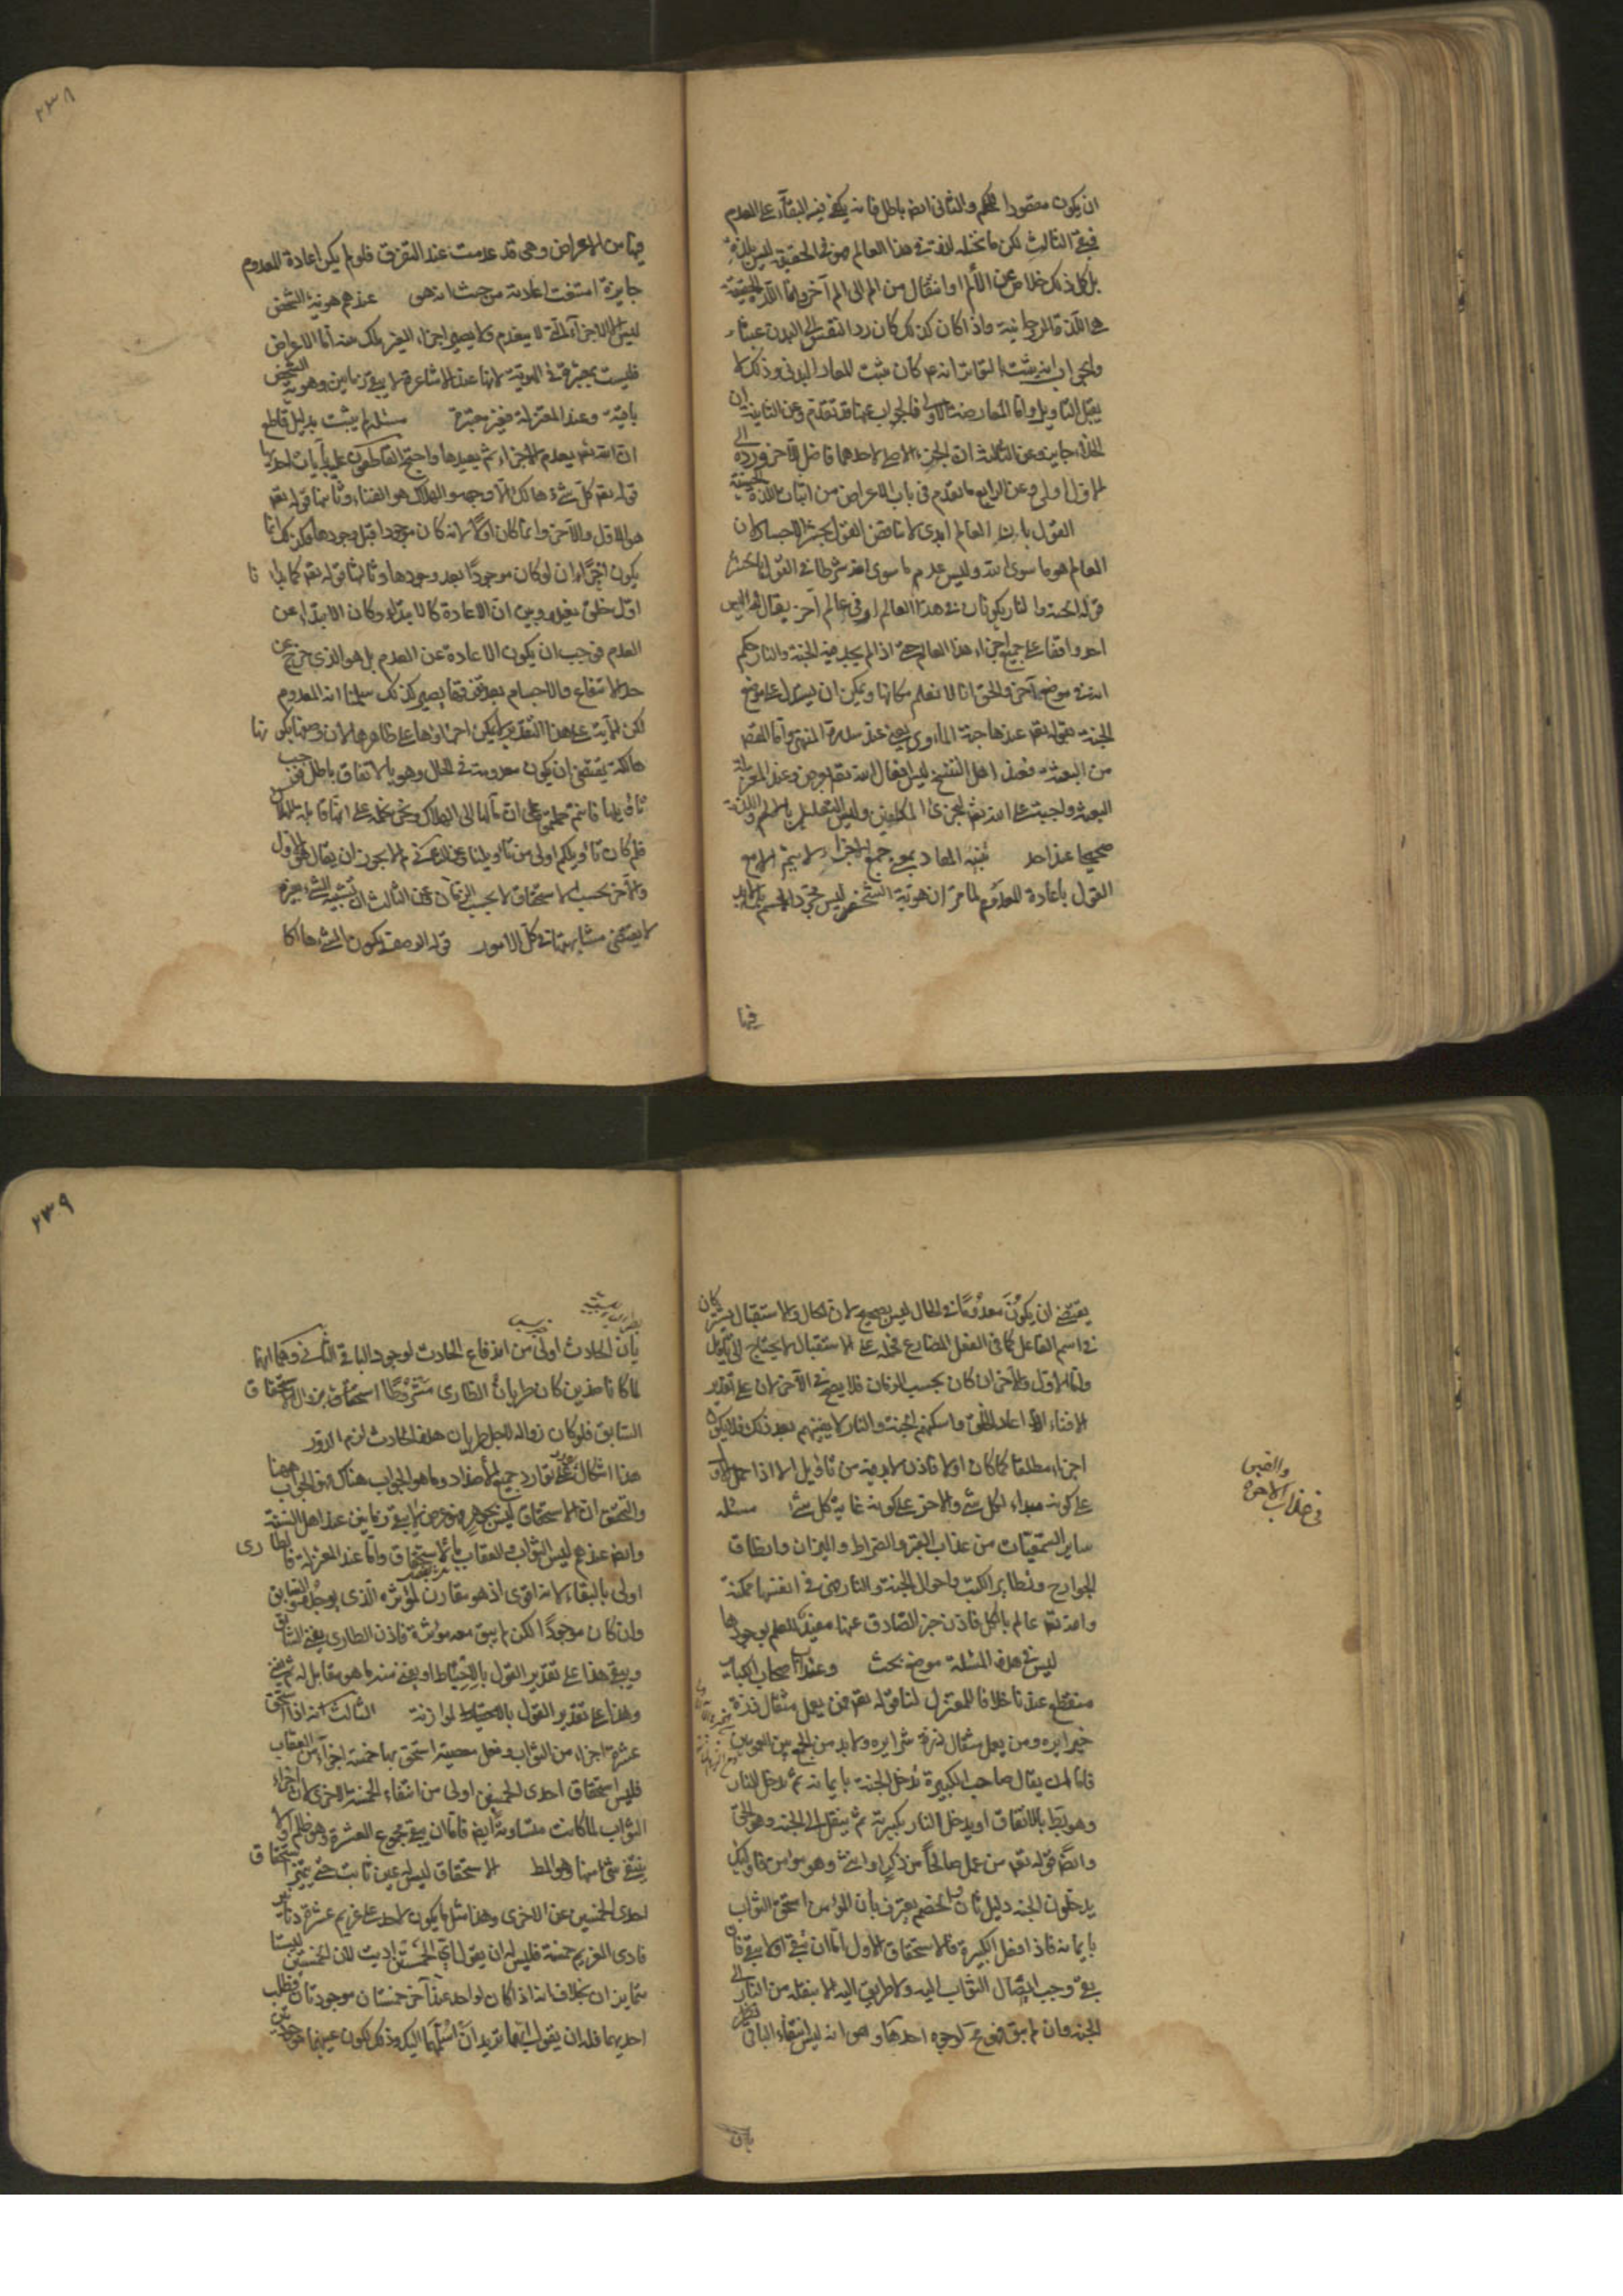 ان يكون مقصودا للحكيم والثانى ايضا باطل فانه يكفى فيه البقآء على العدم
فبقى الثالث لكن ما نتخيله لذة فى هذا العالم فهو فى الحقيقة ليس بلذة
بل كل ذلك خلاص عن الألم او انتقال من الم الى الم آخر وانما اللذة الحقيقية
هى اللذة الروحانية واذا كان كذلك كان رد النفس الى البدن عبثا
والجواب انه ثبت بالتواتر انه كان يثبت المعاد البدنى وذلك لا
يقبل التاويل واما المعارضة الاولى فالجواب عنها قد تقدم وعن الثانية ان
الخلاء جايز وعن الثالثة ان الجزء الاصلى لاحدهما فاضل للآخر ورده الى
الاول اولى وعن الرابع ما تقدم فى باب الاعراض من اثبات اللذة الحسية
القول بان العالم ابدى لا يناقض القول بحشر الاجساد لان
العالم هو ما سوى الله وليس عدم ما سوى الله شرطا فى القول بالحشر
قوله الجنة والنار يكونان فى هذا العالم او فى عالم آخر يقال لهم ليس
احد واقفا على جميع اجزاء هذا العالم حتى اذا لم يجد فيه الجنة والنار حكم
انه فى موضع آخر والحق انا لا نعلم مكانها ويمكن ان يستدل على موضع
الجنة بقوله تعالى عندها جنة المأوى يعنى عند سدرة المنتهى واما القصد
من البعث فعند اهل السنة ليس افعال الله تعالى بغرض وعند المعتزلة
البعث واجب على الله تعالى ليجزى المكلفين وليس التعليل بالالم واللذة
صحيحا عند احد تنبيه المعاد بمعنى جمع الاجزاء لا يتم الا مع
القول باعادة المعدوم لما مر ان هوية الشخص ليس مجرد الجسم بل لا بد
فيها
٢٣٨
فيها من الاعراض وهى قد عدمت عند التفرق فلو لم يكن اعادة المعدوم
جايزة امتنعت اعادته من حيث انه هى عندهم هوية الشخص
ليس الا الاجزآء التى لا ينعدم ولا يصير اجزاء لغير تلك منه أما الاعراض
فليست بمعتبرة فى الهوية لانها عند الاشاعرة لا يبقى زمانين وهوية الشخص
باقية وعند المعتزلة فغير معتبرة مسئلة لم يثبت بدليل قاطع
ان الله تعالى يعدم الاجزاء ثم يعيدها واحتج القاطعون عليه بآيات احديها
قوله تعالى كل شئ هالك الا وجهه والهلاك هو الفناء وثانيها قوله تعالى
هو الاول والآخر وانما كان اولا لانه كان موجودا قبل وجودها فكذلك انما
يكون آخرا ان لو كان موجودًا بعد وجودها وثالثها قوله تعالى كما بدأنا
اول خلق نعيده وبين ان الاعادة كالابتداء وكان الابتداء عن
العدم فوجب ان يكون الاعادة عن العدم بل هو الذى خرج عن
حد الانتفاع والاجسام بعد تفرقها يصير كذلك سلمنا انه المعدوم
لكن الآية على هذا التقدير لا يمكن اجراؤها على ظاهرها لان وصفها بكونها
هالكة يقتضى ان يكون معدومة فى الحال وهو بالاتفاق باطل فوجب
تأويلها فانتم حملتموها على ان مآلها الى الهلاك ونحن نحمله على انها قابلة للهلاك
فلم كان تأويلكم اولى من تأويلنا وعن الثانى لم لا يجوز ان يقال هو الاول
والآخر بحسب الاستحقاق لا بحسب الزمان وعن الثالث ان تشبيه الشئ بغيره
لا يقتضى مشابهتهما فى كل الامور قوله الوصف بكون الشئ هالكا
يقتضى ان يكون معدومًا فى الحال ليس بصحيح لان الحال والاستقبال يشتركان
فى اسم الفاعل كما فى الفعل المضارع فحمله على الاستقبال لا يحتاج الى تأويل
واما الاول والآخر ان كان بحسب الزمان فلا يصح فى الآخر لان على تقدير
الافناء اذا اعاد الخلق واسكنهم الجنة والنار لا يفنيهم بعد ذلك فلا يكون
آخرا مطلقا كما كان اولا فاذن لا بد فيه من تأويل الا اذا حمل الاول
على كونه مبداء لكل شئ والآخر على كونه غاية كل شئ مسئله
ساير السمعيات من عذاب القبر والصراط والميزان وانطاق
الجوارح وتطاير الكتب واحوال الجنة والنار هى فى انفسها ممكنة
والله تعالى عالم بالكل فاذن خبر الصادق عنها مفيد للعلم بوجودها
ليس فى هذه المسئلة موضع بحث وعيد اصحاب الكباير
منقطع عندنا خلافا للمعتزلة لنا قوله تعالى فمن يعمل مثقال ذرة
خيرا يره ومن يعمل مثقال ذرة شرا يره ولا بد من الجمع بين العمومين
فاما ان يقال صاحب الكبيرة يدخل الجنة بايمانه ثم يدخل النار
وهو بط بالاتفاق او يدخل النار بكبيرته ثم ينتقل الى الجنة وهو الحق
وايضًا قوله تعالى من عمل صالحًا من ذكر او انثى وهو مؤمن فاوليك
يدخلون الجنة دليل ثان الخصم يعترف بان المؤمن استحق الثواب
بايمانه فاذا فعل الكبيرة فالاستحقاق الاول اما ان يبقى او لا يبقى فان
بقى وجب ايصال الثواب اليه ولا طريق اليه الا بنقله من النار الى
الجنة وان لم يبق فهو مح لوجوه احدها وهو انه ليس انتفاء الباقى
بان
٢٣٩
بأن الحادث اولى من اندفاع الحادث لوجود الباقى الثانى وهما انهما
لما كانا ضدين كان طريان الطارى مشروطًا بزوال الاستحقاق
السابق فلو كان زواله لاجل طريان هذا الحادث لزم الدور
هذا اشكال على توارد جميع الاضداد وما هو الجواب هناك فهو الجواب ههنا
والتحقيق ان الاستحقاق ليس بجوهر فهو عرض لا يبقى زمانين عند اهل السنة
وايضا عندهم ليس الثواب والعقاب بالاستحقاق واما عند المعتزلة فالطارى
اولى بالبقاء لانه اقوى اذ هو مقارن لمؤثره الذى يوجده والسابق
وان كان موجودًا لكن لم يبق معه مؤثره فاذن الطارى ينفى السابق
ويبقى هذا على تقدير القول بالاحباط او يفنى منه ما هو مقابل له ثم يفنى
وهذا على تقدير القول بالموازنة الثالث انه اذا استحق
عشرة اجزاء من الثواب وفعل معصية استحق بها خمسة اجزآء من العقاب
فليس استحقاق احدى الخمستين اولى من انتفاء الخمسة الاخرى لان اجزاء
الثواب لما كانت متساوية ايضا فاما ان يبقى مجموع العشرة وهو ظلم او لا
ينتفى شئ منها وهو المط الاستحقاق ليس له عين ثابت حتى يتميز
احدى الخمستين عن الاخرى وهذا مثل ما يكون لاحد على غريم عشرة دنانير
فادى الغريم خمسة فليس له ان يقول اى الخمستين اديت لان الخمستين ليستا
متمايزتان بخلاف انه اذا كان لواحد عند آخر خمستان موجودتان فطلب
احديهما فله ان يقول ايهما تريد ان اسلمها اليك وذلك لكون عينهما موجودتين